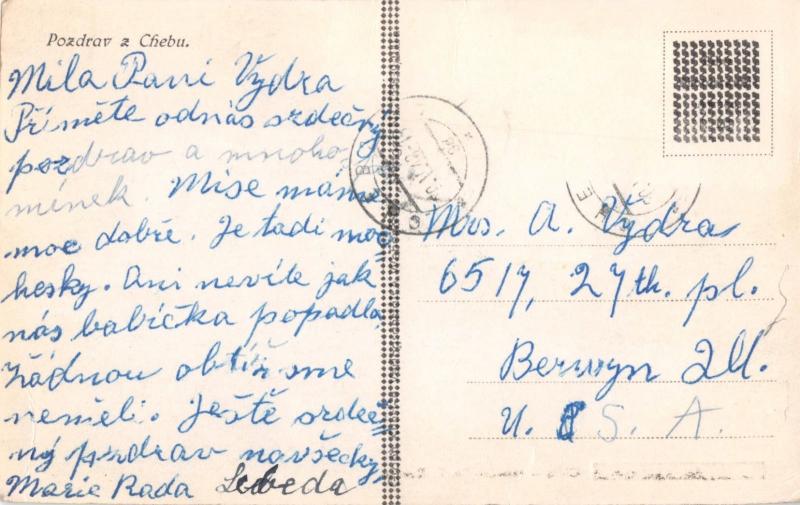 Pozdrav z Chebu.
Mila Pani Vydra
Příměte odnás srdečný
pozdrav a mnoho
mínek. Mise máme
moc dobře. Je tadi moc
hesky. Ani nevíte jak
nás babička popadla,
žádnou obtíž sme
neměli. Ještě srdeč
ný pozdrav navšecky,
Marie Rada Lebeda
Mrs. A. Vydra
6517, 27th. pl.
Berwyn Ill.
U. S. A.